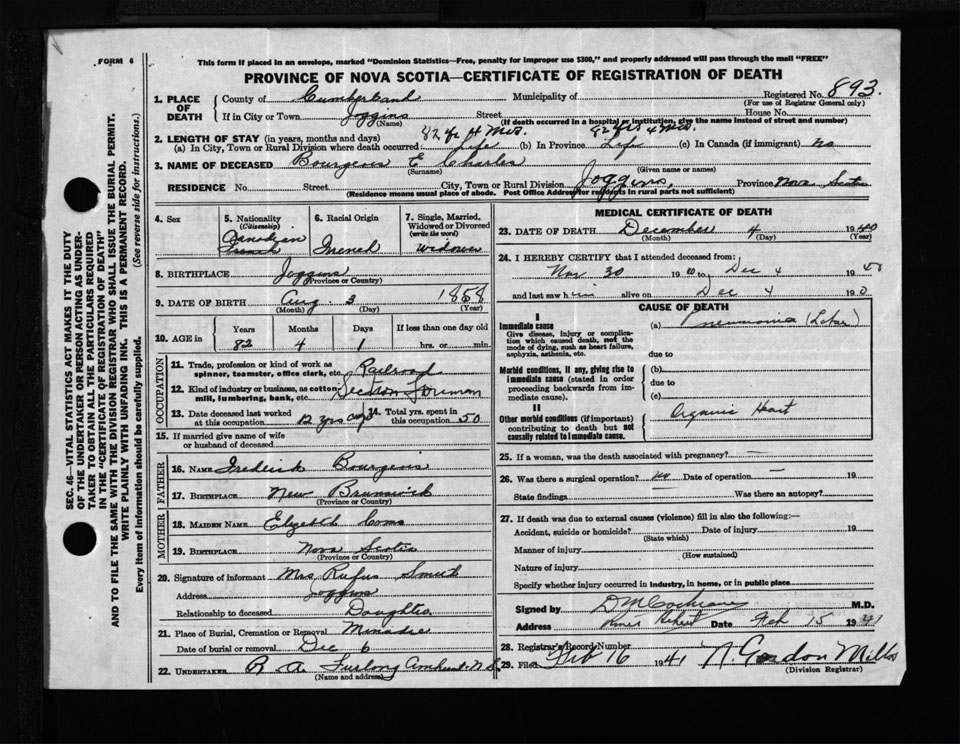 FORM 6
This form if placed in an envelope, marked "Dominion Statistics—Free, penalty for improper use $300," and properly addressed will pass through the mail "FREE"
PROVINCE OF NOVA SCOTIA—CERTIFICATE OF REGISTRATION OF DEATH
Registered No. 893.
(For use of Registrar General only)
1. PLACE OF DEATH
County of Cumberland Municipality of
If in City or Town Joggins Street House No.
(Name) (If death occurred in a hospital or institution, give the name instead of street and number)
2. LENGTH OF STAY (in years, months and days) 82 yrs 4 Mos. 82 yrs 4 Mos.
(a) In City, Town or Rural Division where death occurred: Life (b) In Province Life (c) In Canada (if immigrant) no
3. NAME OF DECEASED Bourgeois E Charles
(Surname) (Given name or names)
RESIDENCE No. Street City, Town or Rural Division Joggins, Province Nova Scotia
(Residence means usual place of abode. Post Office Address for residents in rural parts not sufficient)
4. Sex
5. Nationality (Citizenship) Canadian French
6. Racial Origin French
7. Single, Married, Widowed or Divorced (write the word) Widower
8. BIRTHPLACE Joggins
(Province or Country)
9. DATE OF BIRTH Aug. 3 1858
(Month) (Day) (Year)
10. AGE in Years Months Days If less than one day old
82 4 1 hrs. or min.
OCCUPATION
11. Trade, profession or kind of work as spinner, teamster, office clerk, etc. Railroad
12. Kind of industry or business, as cotton mill, lumbering, bank, etc. Section Foreman
13. Date deceased last worked at this occupation 12 yrs ago 14. Total yrs. spent in this occupation 50
15. If married give name of wife or husband of deceased
FATHER
16. NAME Frederick Bourgeois
17. BIRTHPLACE New Brunswick
(Province or Country)
MOTHER
18. MAIDEN NAME
19. BIRTHPLACE Nova Scotia
(Province or Country)
20. Signature of informant Mrs Rufus Smith
Address Joggins
Relationship to deceased Daughter
21. Place of Burial, Cremation or Removal Minudie
Date of burial or removal Dec 6
22. UNDERTAKER R A Furlong Amherst N.S.
(Name and address)
MEDICAL CERTIFICATE OF DEATH
23. DATE OF DEATH December 4 1940
(Month) (Day) (Year)
24. I HEREBY CERTIFY that I attended deceased from:
Nov 30 1940 to Dec 4 1940
and last saw him alive on Dec 4 1940
CAUSE OF DEATH
I
Immediate cause (a) Pneumonia (Lobar)
Give disease, injury or complication which caused death, not the mode of dying, such as heart failure, asphyxia, asthenia, etc.
due to
Morbid conditions, if any, giving rise to immediate cause (stated in order proceeding backwards from immediate cause).
(b)
due to
(c)
II
Other morbid conditions (if important) contributing to death but not causally related to immediate cause.
Organic Heart
25. If a woman, was the death associated with pregnancy? —
26. Was there a surgical operation? no Date of operation — 19
State findings Was there an autopsy?
27. If death was due to external causes (violence) fill in also the following:—
Accident, suicide or homicide? Date of injury 19
(State which)
Manner of injury
(How sustained)
Nature of injury
Specify whether injury occurred in industry, in home, or in public place
Signed by D M Cochrane M.D.
Address River Hebert Date Feb 15 1941
28. Registrar's Record Number
29. Filed Feb 16 1941 N. Gordon Mills
(Division Registrar)
SEC. 46—VITAL STATISTICS ACT MAKES IT THE DUTY
OF THE UNDERTAKER OR PERSON ACTING AS UNDER-
TAKER TO OBTAIN ALL THE PARTICULARS REQUIRED
IN THE "CERTIFICATE OF REGISTRATION OF DEATH"
AND TO FILE THE SAME WITH THE DIVISION REGISTRAR WHO SHALL ISSUE THE BURIAL PERMIT.
WRITE PLAINLY WITH UNFADING INK. THIS IS A PERMANENT RECORD.
Every item of information should be carefully supplied. (See reverse side for instructions.)